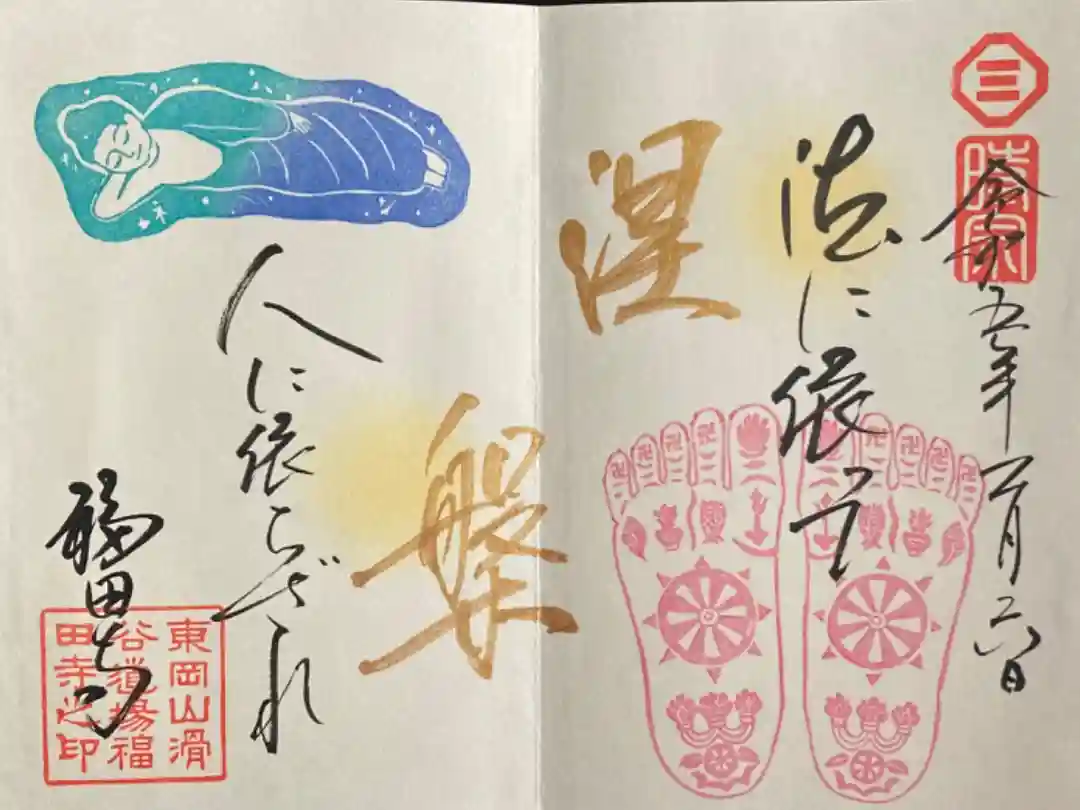 令和五年二月二六日
法に依って
涅
槃
人に依らざれ
福田寺
東岡山滑
谷道場福
田寺之印
三